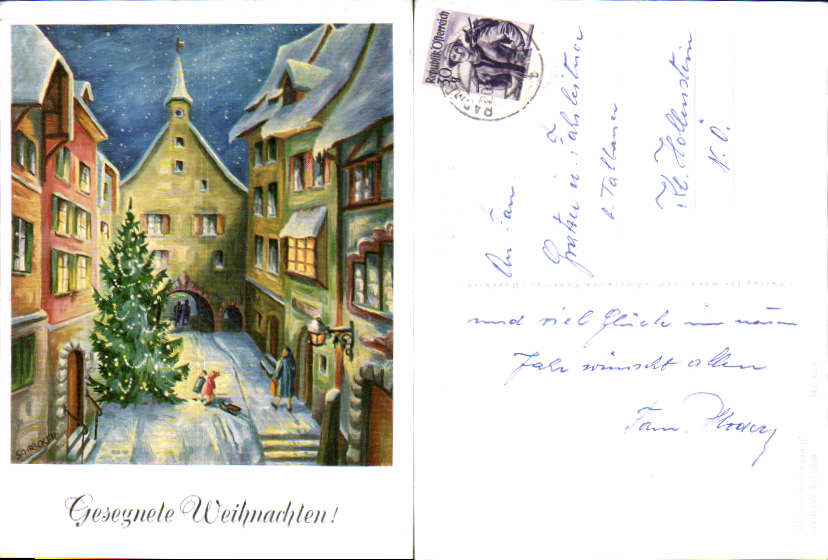 Gesegnete Weihnachten!
Republik Österreich
30
An Fam
Gratzer u. Fahrleitner
Kl. Hollenstein
N. Ö.
und viel Glück im neuen
Jahr wünscht allen
Fam.